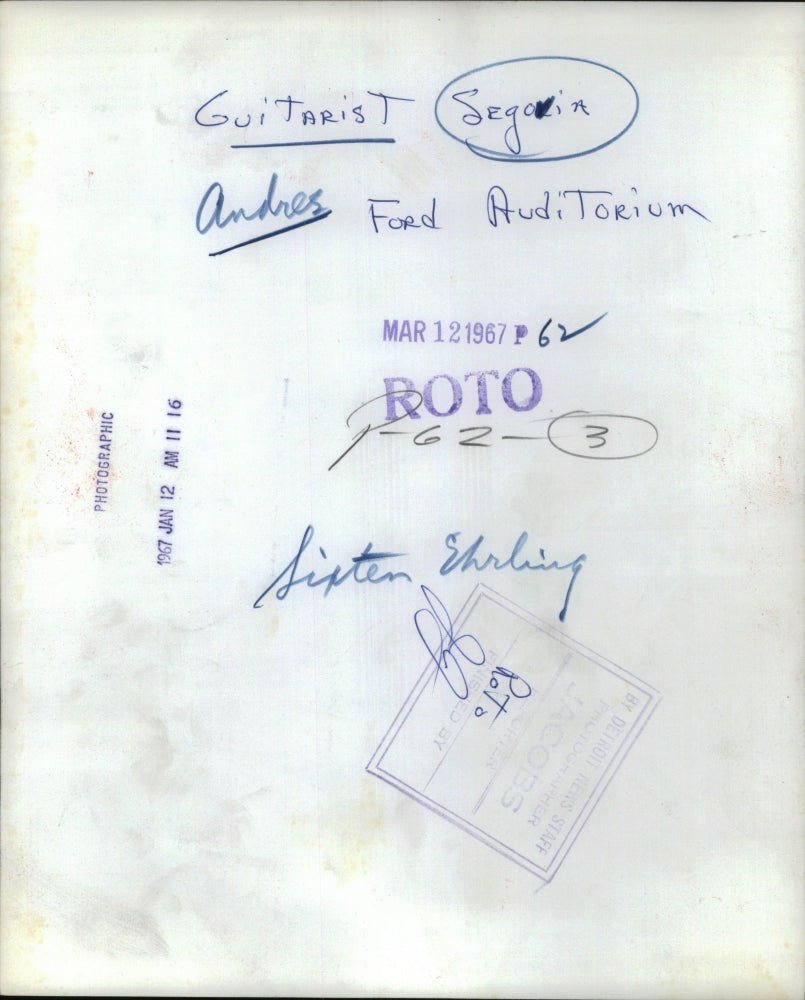 GUiTARisT SEGOViA
Andres FORd AUdiTORiUM
MAR 12 1967 P 62
ROTO
P-62-3
PHOTOGRAPHIC
1967 JAN 12 AM 11 16
Sixten Ehrling
RoTo
BY DETROIT NEWS STAFF
PHOTOGRAPHER
JACOBS
FINISHED BY